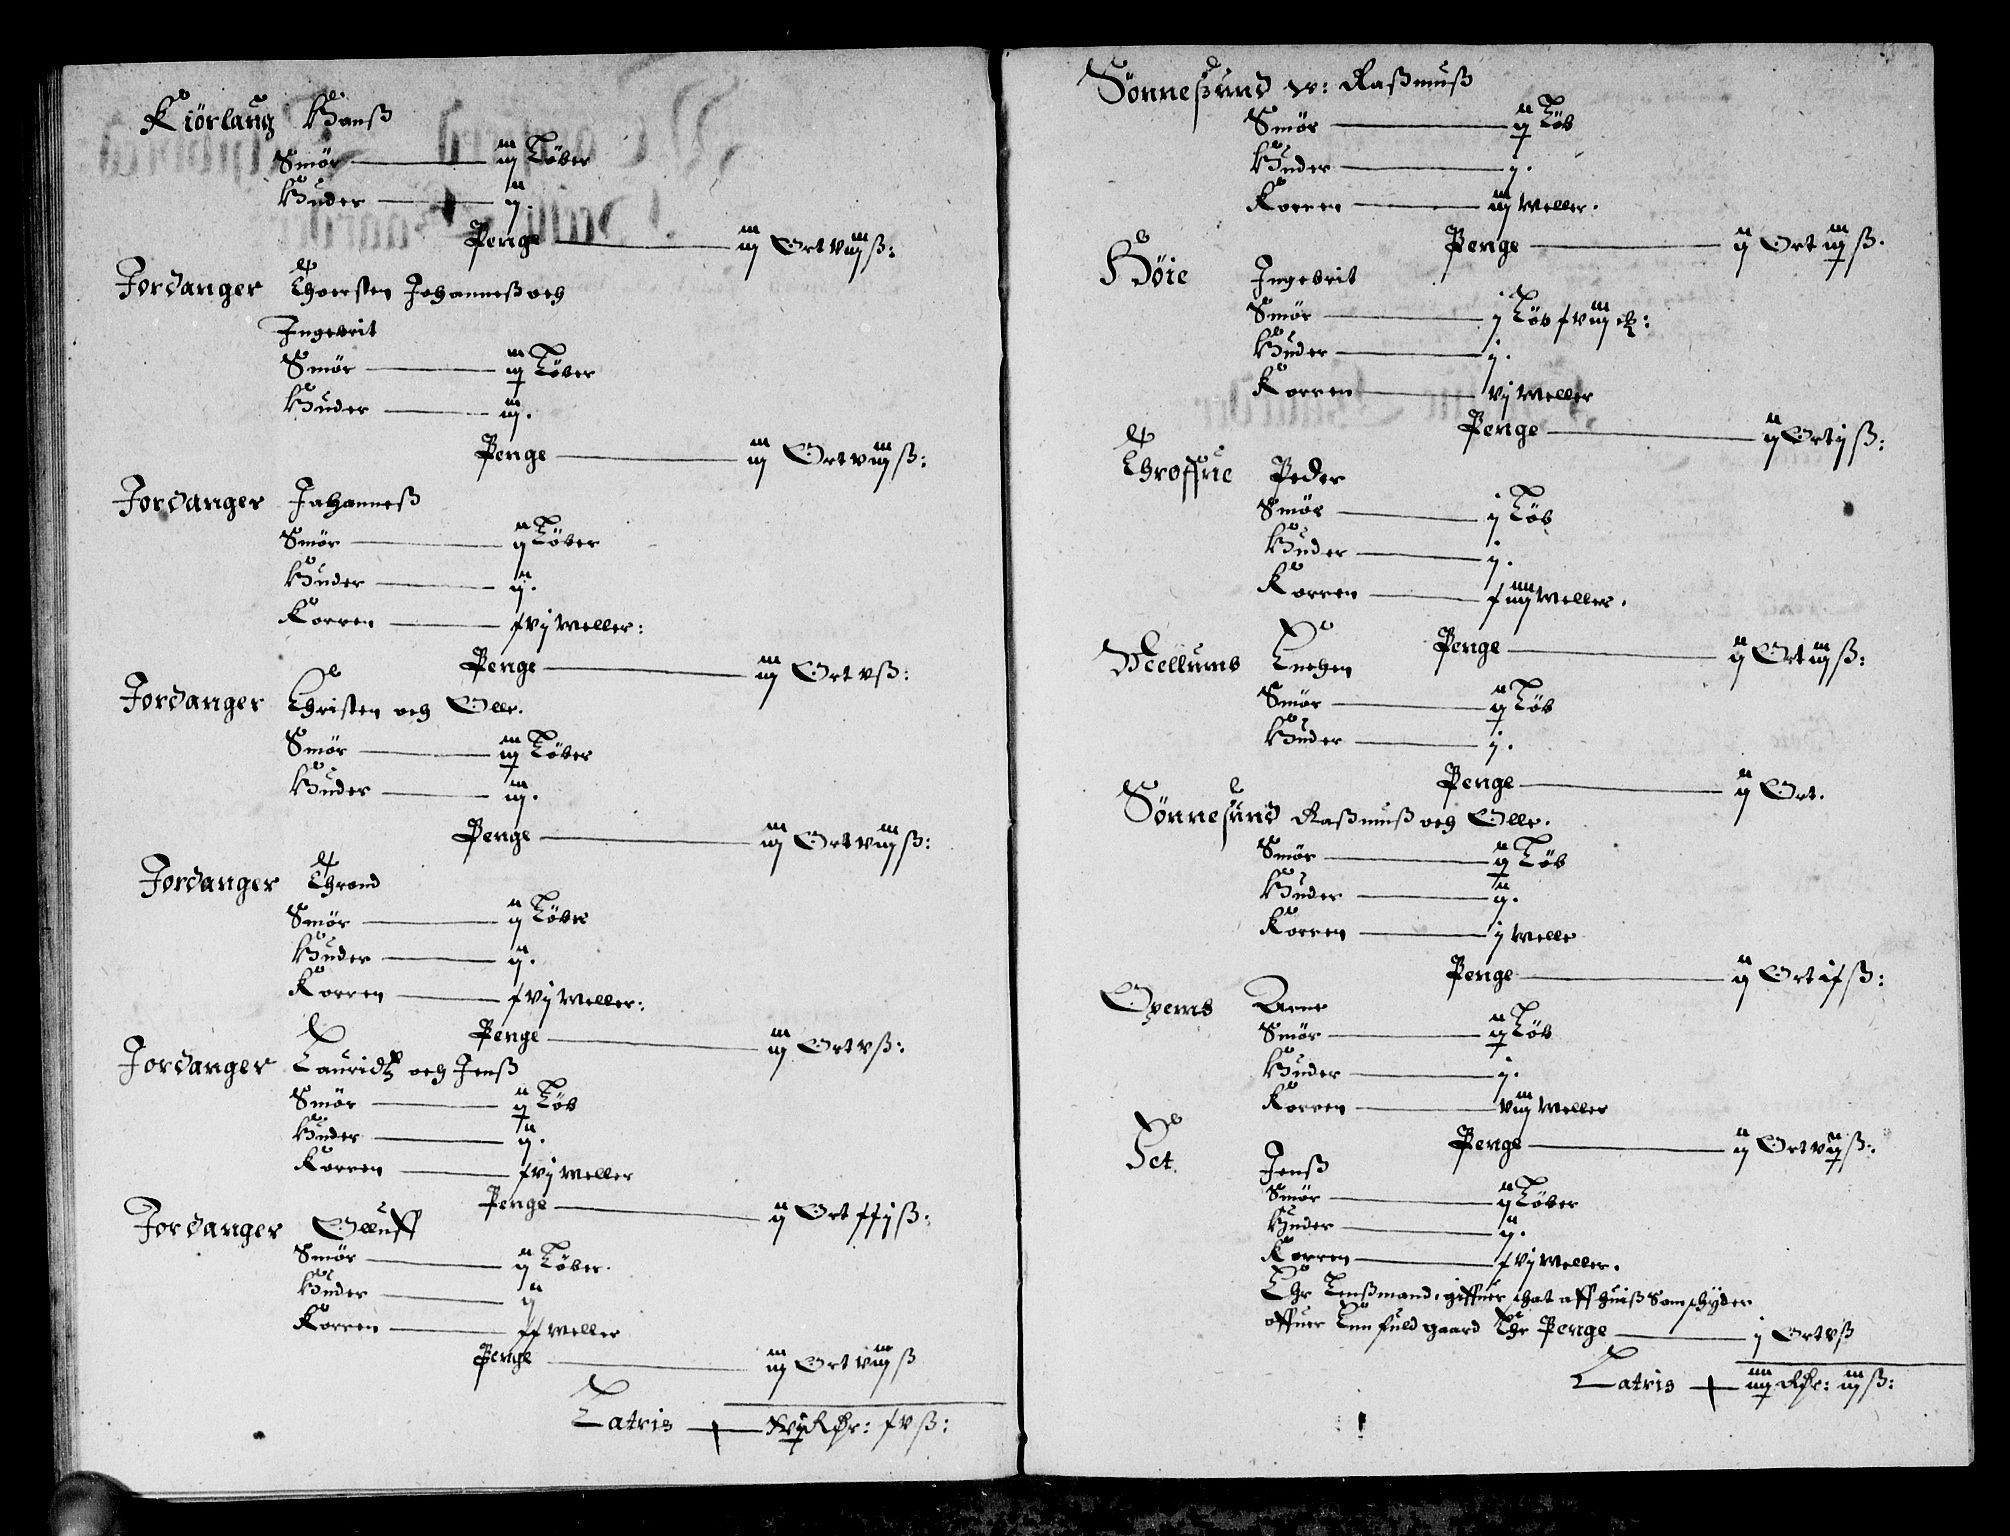 Kiörlaug Hanß
Smör iij Löber
Huder ij.
Penge iij Ort viij ß:
Jordanger Thoersten Johanneß och
Ingebrit
Smör iij Löber
Huder iij.
Penge iij Ort viij ß:
Jordanger Johanneß
Smör ij Löber
Huder ij.
Korren xvj Meller:
Penge iij Ort v ß:
Jordanger Christen och Olle.
Smör iij Löber
Huder iij.
Penge iij Ort viij ß:
Jordanger Thrond
Smör ij Löber
Huder ij.
Korren xvj Meller:
Penge iij Ort v ß:
Jordanger Lauridtz och Jenß
Smör ij Löb
Huder ij.
Korren xvj Meller
Penge ij Ort xxj ß:
Jordanger Olluff
Smör ij Löber.
Huder ij
Korren xx Meller
Penge iij Ort viij ß
Latris Rdr: xv ß:
Sönnesund Raßmuß
Smör ij Löb
Huder j.
Korren iij Meller.
Penge ij Ort iij ß.
Höie Ingebrit
Smör j Löb xviij
Huder j.
Korren vj Meller
Penge ij Ort j ß:
Throffue Peder
Smör j Löb
Huder j.
Korren xiiij Meller.
Penge ij Ort iij ß:
Mellums Knehen
Smör ij Löb
Huder j.
Penge ij Ort.
Sönnesund Raßmuß och Olle.
Smör ij Löb
Huder ij.
Korren j Melle
Penge ij Ort ix ß:
Opems Arne
Smör ij Löb
Huder j.
Korren viij Meller
Penge ij Ort vij ß:
Jenß
Smör ij Löber
Huder ij.
Korren xvj Meller.
Er Lenßmand, giffuer schat aff huiß Som schyder
offuer Enn fuld gaard Er Penge j Ort v ß
Latris iiij Rdr: iij ß: